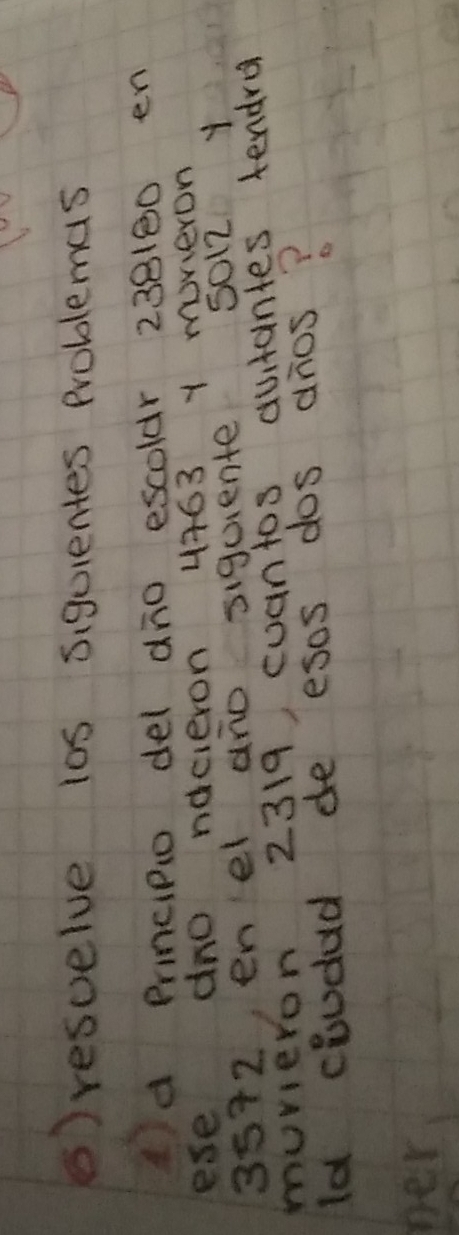 6) resuelve los siguientes problemas
1) a principio del año escolar 238180 en
ese año nacieron 4763 y murieron
3572, en el año siguiente 5012 y
murieron 2319, cuantos avitantes tendra
la ciudad de esos dos años?
ner